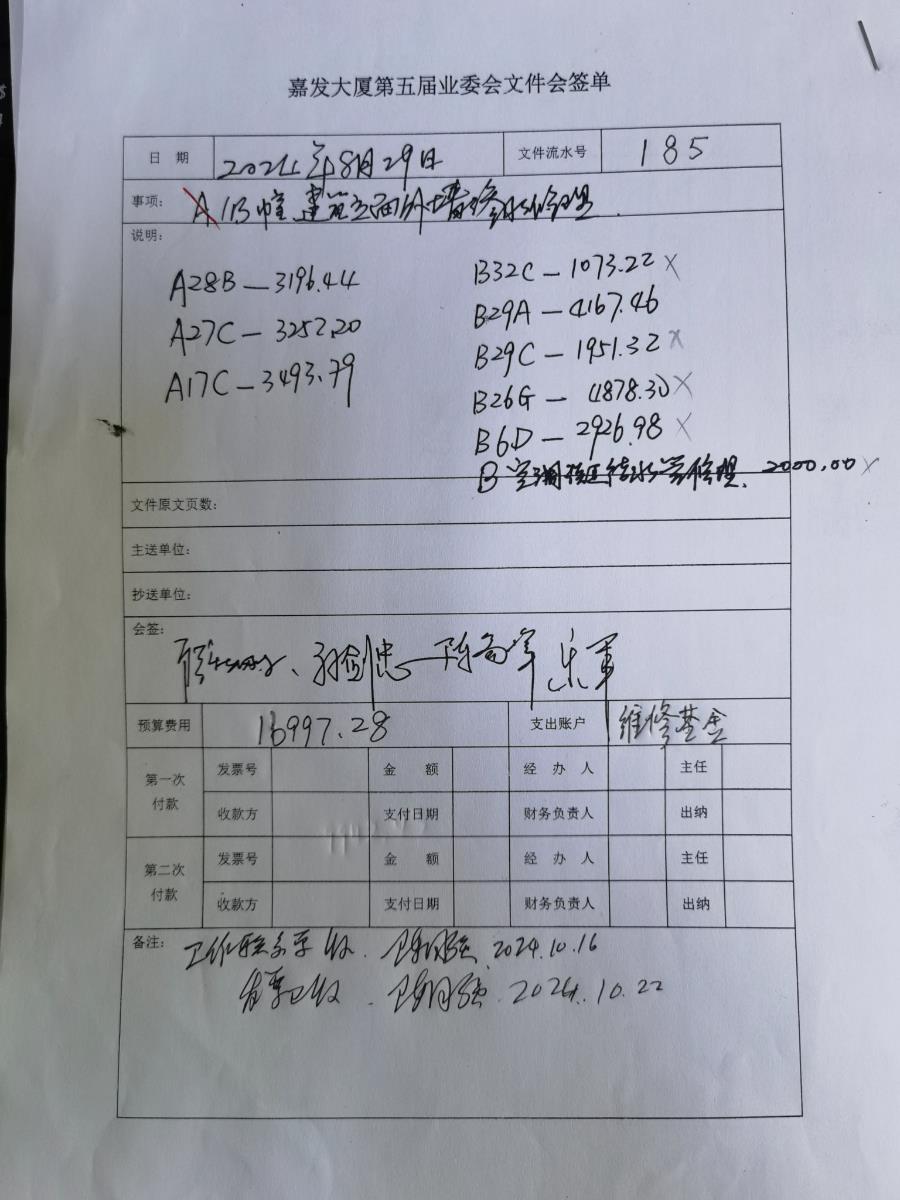 嘉发大厦第五届业委会文件会签单
日 期 2024年8月29日 文件流水号 185
事项: A/B幢建筑立面外墙渗水修理.
说明:
A28B—3196.44 B32C—1073.22 ×
A27C—3252.20 B29A—4167.46
A17C—3493.79 B29C—1951.32 ×
B26G— 4878.30 ×
B6D—2926.98 ×
B 2000.00 ×
文件原文页数:
主送单位:
抄送单位:
会签:
预算费用 16997.28 支出账户 维修基金
第一次付款 发票号 金 额 经 办 人 主任
收款方 支付日期 财务负责人 出纳
第二次付款 发票号 金 额 经 办 人 主任
收款方 支付日期 财务负责人 出纳
备注: 工作联系单收. 2024.10.16
发票已收. 2024.10.22